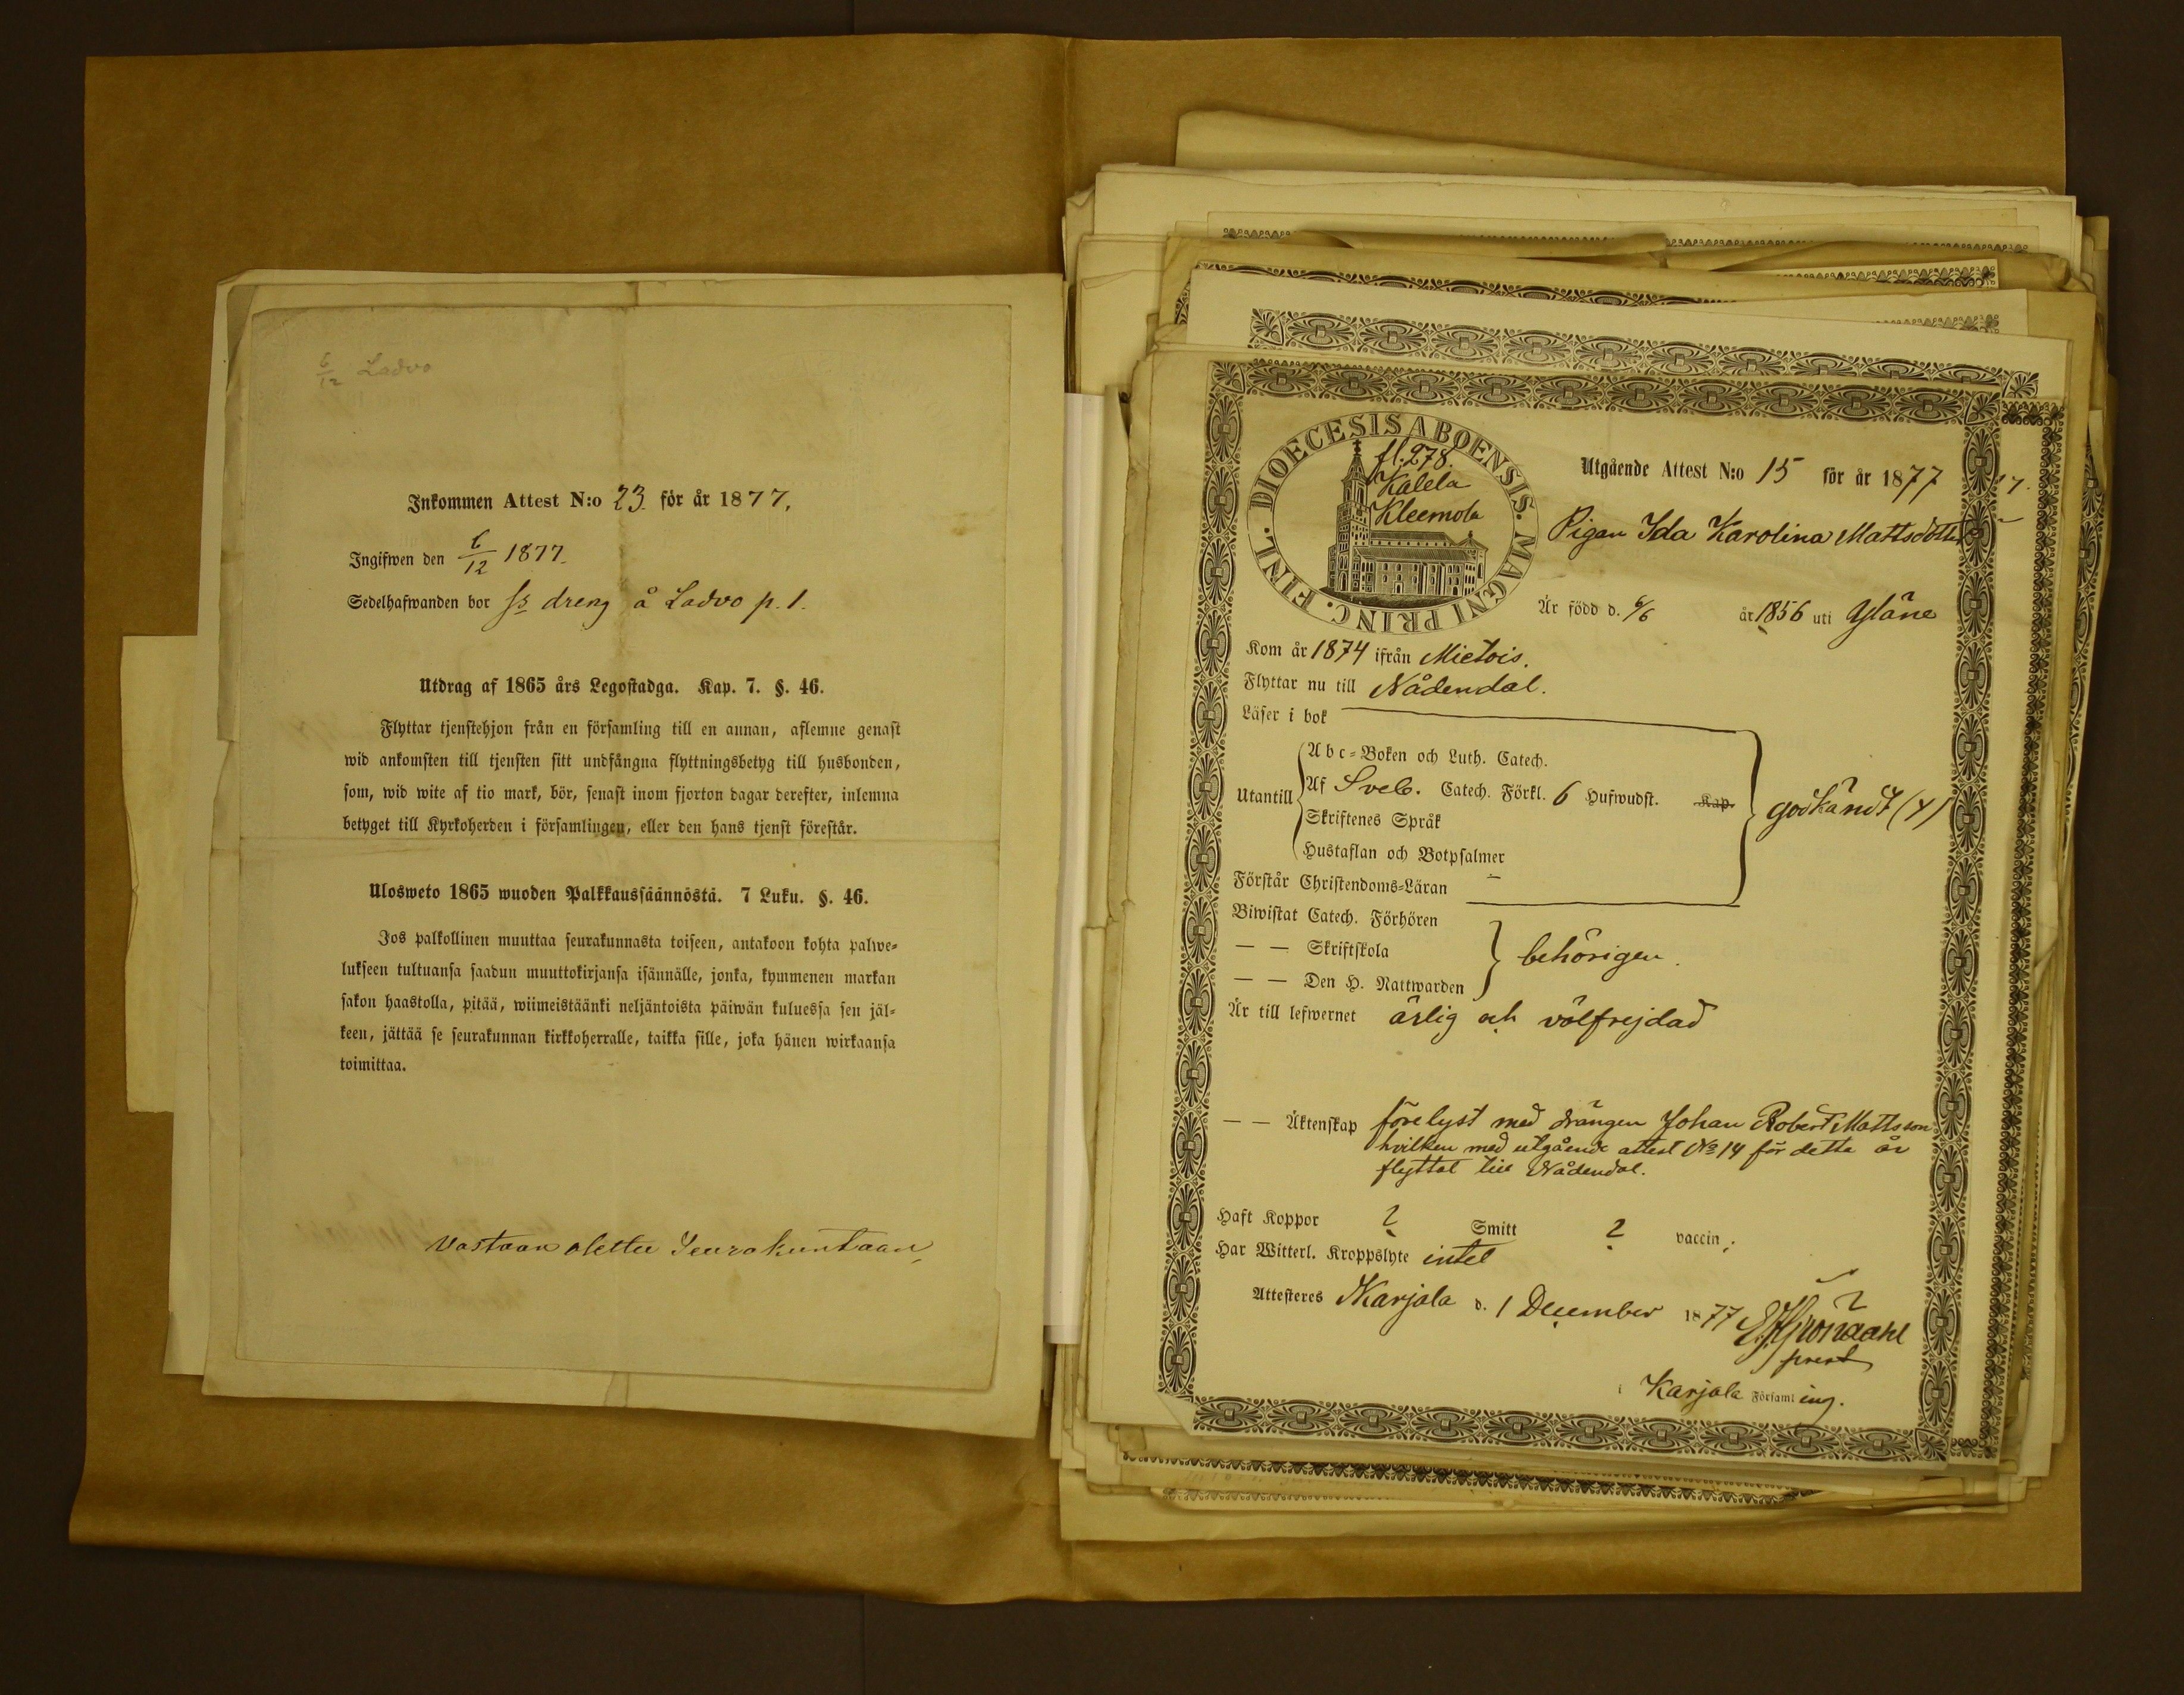 6/12 Ladvo
Inkommen Attest N:o 23. för år 1877.
Ingifwen den 6/12 1877.
Sedelhafwanden bor ss dreng å Ladvo p. 1.
Utdrag af 1865 års Legostadga. Kap. 7. §. 46.
Flyttar tjenstehjon från en församling till en annan, aflemne genast
wid ankomsten till tjensten sitt undfångna flyttningsbetyg till husbonden,
som, wid wite af tio mark, bör, senast inom fjorton dagar derefter, inlemna
betyget till Kyrkoherden i församlingen, eller den hans tjenst förestår.
Ulosweto 1865 wuoden Palkkaussäännöstä. 7 Luku. §. 46.
Jos palkollinen muuttaa seurakunnasta toiseen, antakoon kohta palwe-
lukseen tultuansa saadun muuttokirjansa isännälle, jonka, kymmenen markan
sakon haastolla, pitää, wiimeistäänki neljäntoista päiwän kuluessa sen jäl-
keen, jättää se seurakunnan kirkkoherralle, taikka sille, joka hänen wirkaansa
toimittaa.
Vastaan olettu Seurakuntaan
DIOECESIS ABOENSIS. MAGNI PRINC. FINL.
fl. 278.
Kalela
Kleemola
Utgående Attest N:o 15 för år 1877
Pigan Ida Karolina Mattsdotter
Är född d. 6/6 år 1856 uti Yläne
Kom år 1874 ifrån Mietois.
Flyttar nu till Nådendal.
Läser i bok
Utantill
Abc-Boken och Luth. Catech.
Af Sveb. Catech. Förkl. 6 Hufwudst. Kap.
Skriftenes Språk
Hustaflan och Botpsalmer
godkändt (4)
Förstår Christendoms-Läran
Biwistat Catech. Förhören
— — Skriftskola
— — Den H. Nattwarden
behörigen.
Är till lefwernet ärlig och välfrejdad
— — Äktenskap förelyst med drängen Johan Robert Mattsson
hvilken med utgående attest No 14 för detta år
flyttat till Nådendal.
Haft Koppor ? Smitt ? vaccin.
Har Witterl. Kroppslyte intet
Attesteras Karjala d. 1 December 1877
i Karjala Församling.